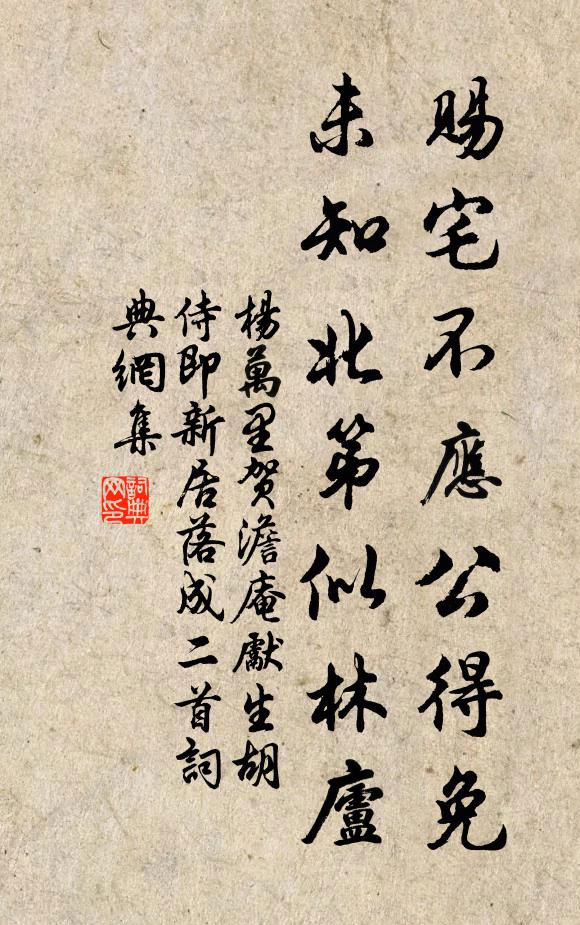 賜宅不應公得免
未知北第似林廬
楊萬里賀澹庵獻生胡
侍即新居落成二首詞
典網集
詞典
网印